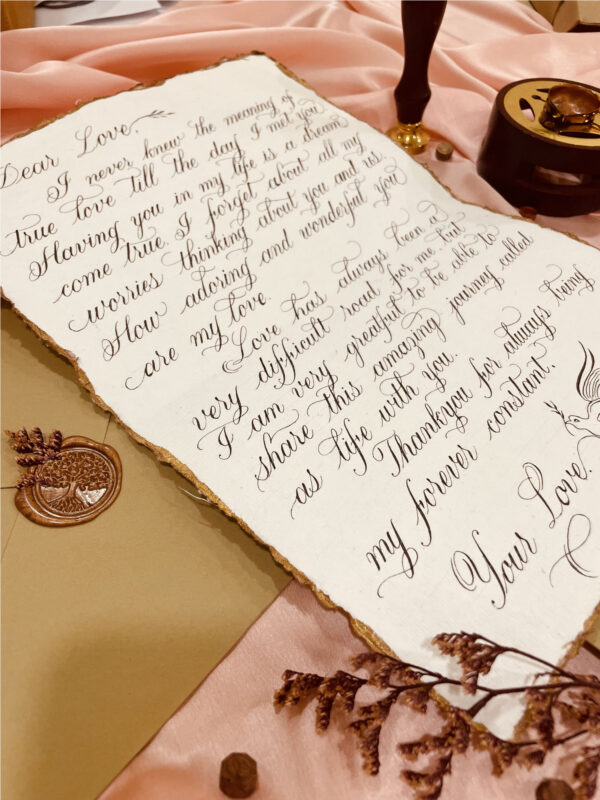 Dear Love,
I never knew the meaning of
true love till the day I met you.
Having you in my life is a dream
come true. I forget about all my
worries thinking about you and us.
How adoring and wonderful you
are my love.
Love has always been a
very difficult road for me but
I am very greatful to be able to
share this amazing journey called
as life with you.
Thankyou for always being
my forever constant.
Your Love.